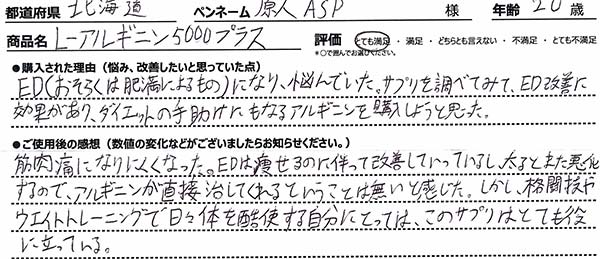 都道府県 北海道 ペンネーム 原人ASP 様 年齢 20 歳
商品名 L-アルギニン5000プラス 評価 とても満足・満足・どちらとも言えない・不満足・とても不満足
*○で囲んでお選びください。
●購入された理由（悩み、改善したいと思っていた点）
ED(おそらくは肥満によるもの)になり、悩んでいた。サプリを調べてみて、ED改善に
効果があり、ダイエットの手助けにもなるアルギニンを購入しようと思った。
●ご使用後の感想（数値の変化などがございましたらお知らせください。）
筋肉痛になりにくくなった。EDは痩せるのに伴って改善していっているし、太るとまた悪化
するので、アルギニンが直接治してくれるということは無いと感じた。しかし、格闘技や
ウエイトトレーニングで日々体を酷使する自分にとっては、このサプリはとても役
に立っている。